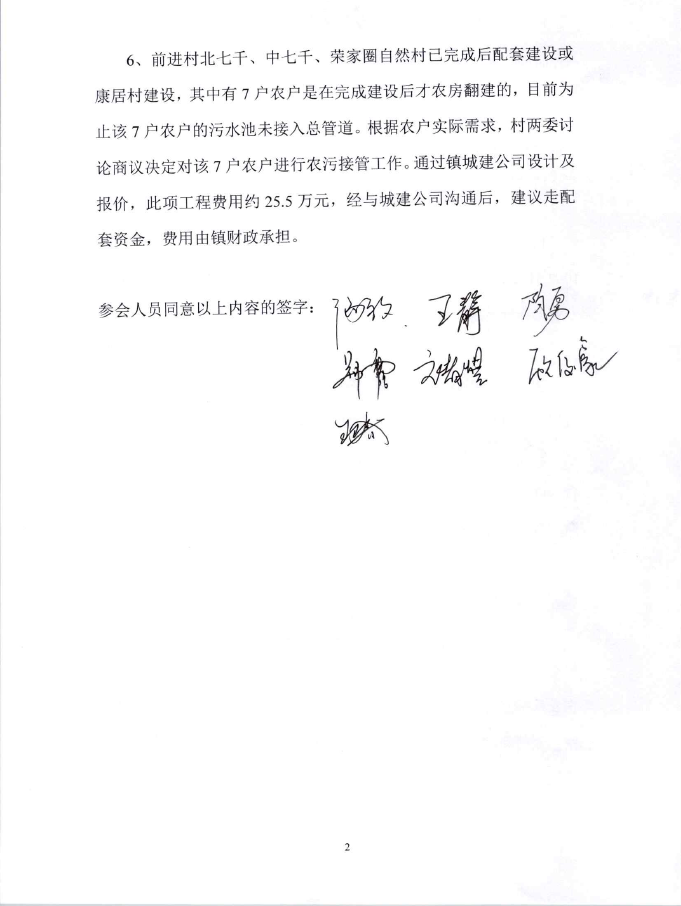 6、前进村北七千、中七千、荣家圈自然村已完成后配套建设或
康居村建设，其中有 7 户农户是在完成建设后才农房翻建的，目前为
止该 7 户农户的污水池未接入总管道。根据农户实际需求，村两委讨
论商议决定对该 7 户农户进行农污接管工作。通过镇城建公司设计及
报价，此项工程费用约 25.5 万元，经与城建公司沟通后，建议走配
套资金，费用由镇财政承担。
参会人员同意以上内容的签字：王静
2